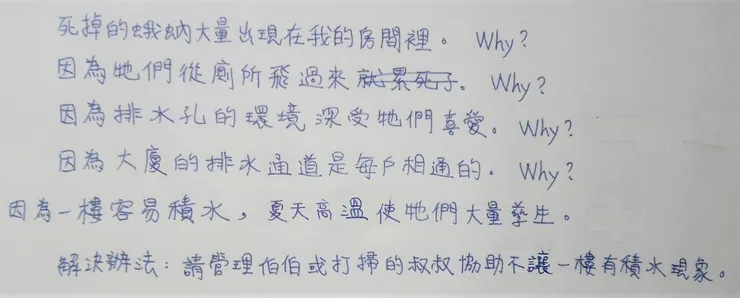 死掉的蛾蚋大量出現在我的房間裡。 Why?
因為牠們從廁所飛過來就累死了。 Why?
因為排水孔的環境深受牠們喜愛。 Why?
因為大廈的排水通道是每戶相通的。 Why?
因為一樓容易積水，夏天高溫使牠們大量孳生。
解決辦法：請管理伯伯或打掃的叔叔協助不讓一樓有積水現象。